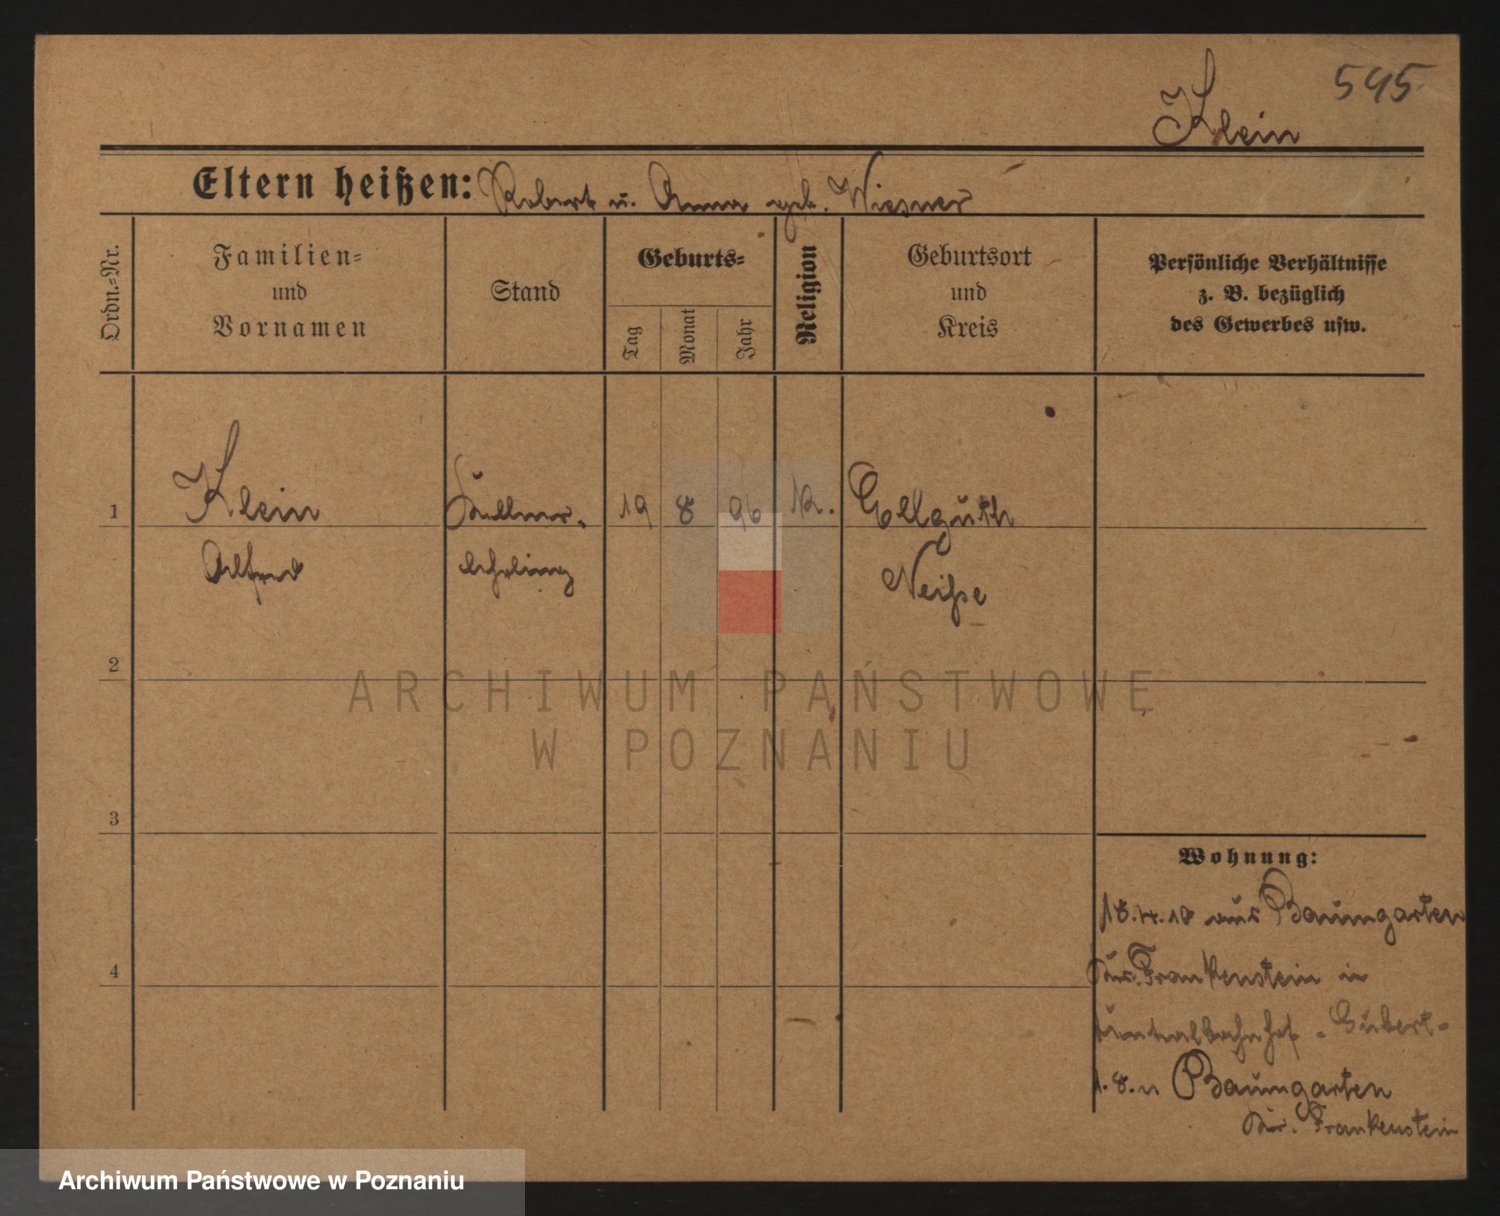 595
Klein
Eltern heißen: Robert u. Anna geb. Wiesner
Ordn.-Nr.
Familien- und Vornamen
Stand
Geburts-
Tag
Monat
Jahr
Religion
Geburtsort und Kreis
Persönliche Verhältnisse
z. B. bezüglich
des Gewerbes usw.
1
Klein
Kellner-
19
8
96
Ellguth
Alfred
lehrling
Neiße
2
ARCHIWUM PAŃSTWOWE
W POZNANIU
3
Wohnung:
aus Baumgarten
4
Kr. Frankenstein in
Zentralbahnhof
Baumgarten
Kr. Frankenstein
Archiwum Państwowe w Poznaniu